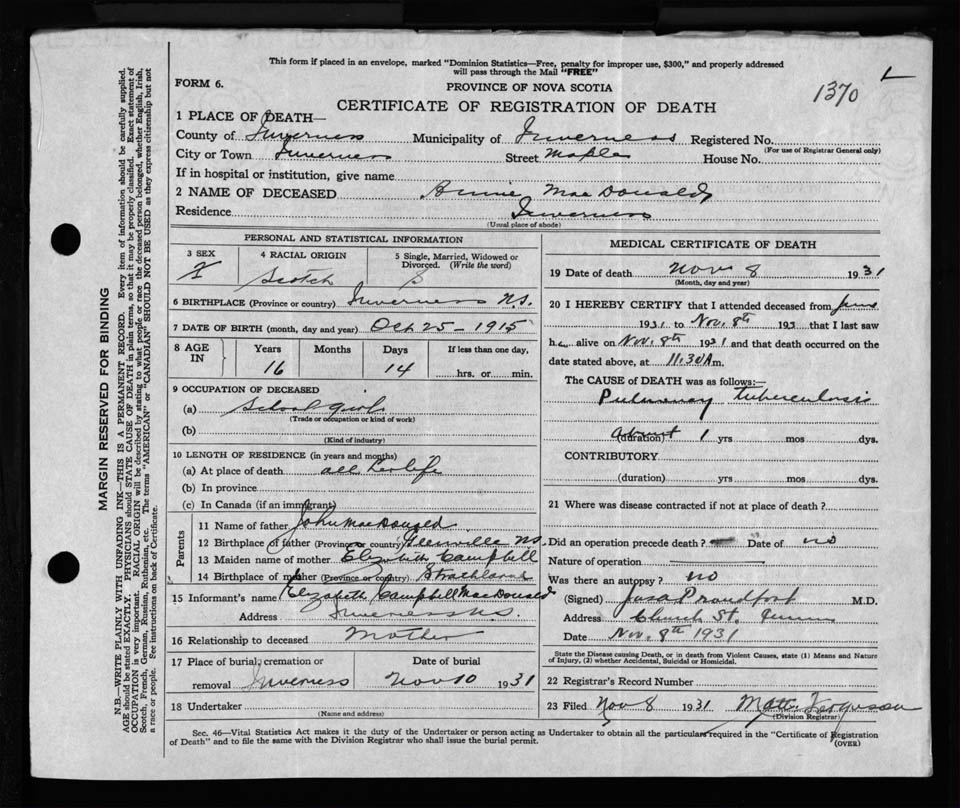 This form if placed in an envelope, marked "Dominion Statistics—Free, penalty for improper use, $300," and properly addressed
will pass through the Mail "FREE"
FORM 6.
PROVINCE OF NOVA SCOTIA
1370
CERTIFICATE OF REGISTRATION OF DEATH
1 PLACE OF DEATH—
County of Inverness Municipality of Inverness Registered No.
(For use of Registrar General only)
City or Town Inverness Street Maple House No.
If in hospital or institution, give name
2 NAME OF DECEASED Annie MacDonald
Residence Inverness
(Usual place of abode)
PERSONAL AND STATISTICAL INFORMATION
3 SEX 4 RACIAL ORIGIN 5 Single, Married, Widowed or
Divorced. (Write the word)
F Scotch S
6 BIRTHPLACE (Province or country) Inverness N.S.
7 DATE OF BIRTH (month, day and year) Oct 25 - 1915
8 AGE IN Years Months Days If less than one day,
16 14 hrs. or min.
9 OCCUPATION OF DECEASED
(a) School girl
(Trade or occupation or kind of work)
(b)
(Kind of industry)
10 LENGTH OF RESIDENCE (in years and months)
(a) At place of death all her life
(b) In province
(c) In Canada (if an immigrant)
Parents
11 Name of father John MacDonald
12 Birthplace of father (Province or country) Glenville N.S.
13 Maiden name of mother Elizabeth Campbell
14 Birthplace of mother (Province or country) Strathlorne
15 Informant's name Elizabeth Campbell MacDonald
Address Inverness N.S.
16 Relationship to deceased Mother
17 Place of burial, cremation or Date of burial
removal Inverness Nov 10 1931
18 Undertaker
(Name and address)
MEDICAL CERTIFICATE OF DEATH
19 Date of death Nov 8 1931
(Month, day and year)
20 I HEREBY CERTIFY that I attended deceased from June
1931 to Nov. 8th 193 that I last saw
h alive on Nov. 8th 1931 and that death occurred on the
date stated above, at 11.30 A m.
The CAUSE of DEATH was as follows:—
Pulmonary Tuberculosis
about (duration) 1 yrs mos dys.
CONTRIBUTORY
(duration) yrs mos dys.
21 Where was disease contracted if not at place of death?
Did an operation precede death? Date of no
Nature of operation
Was there an autopsy? no
(Signed) Proudfoot M.D.
Address Church St.
Date Nov. 8th 1931
State the Disease causing Death, or in death from Violent Causes, state (1) Means and Nature
of Injury, (2) whether Accidental, Suicidal or Homicidal.
22 Registrar's Record Number
23 Filed Nov 8 1931 Ferguson
(Division Registrar)
Sec. 46—Vital Statistics Act makes it the duty of the Undertaker or person acting as Undertaker to obtain all the particulars required in the "Certificate of Registration
of Death" and to file the same with the Division Registrar who shall issue the burial permit.
(OVER)
MARGIN RESERVED FOR BINDING
N.B.—WRITE PLAINLY WITH UNFADING INK—THIS IS A PERMANENT RECORD. Every item of information should be carefully supplied.
AGE should be stated EXACTLY. PHYSICIANS should STATE CAUSE OF DEATH in plain terms, so that it may be properly classified. Exact statement of
OCCUPATION is very important. RACIAL ORIGIN will be described by stating to what people or race the deceased person belonged, whether English, Irish,
Scotch, French, German, Russian, Ruthenian, etc. The terms "AMERICAN" or "CANADIAN" SHOULD NOT BE USED as they express citizenship but not
a race or people. See instructions on back of Certificate.